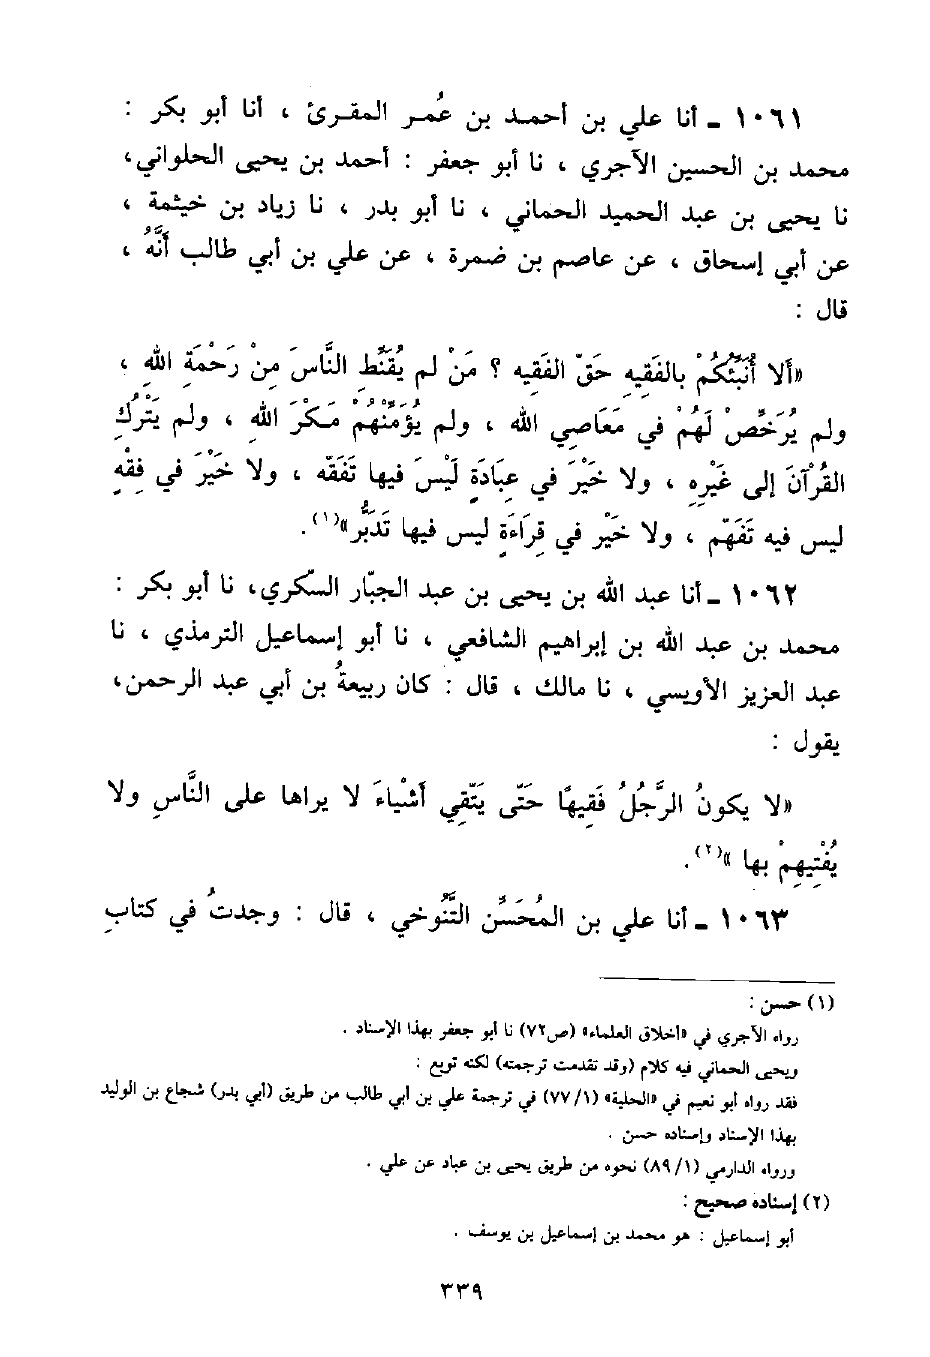 ١٠٦١ ـ أنا علي بن أحمـد بن عُمـر المقـرئ ، أنا أبو بكر :
محمد بن الحسين الآجري ، نا أبو جعفر : أحمد بن يحيى الحلواني،
نا يحيى بن عبد الحميد الحماني ، نا أبو بدر ، نا زياد بن خيثمة ،
عن أبي إسحاق ، عن عاصم بن ضمرة ، عن علي بن أبي طالب أَنَّهُ ،
قال :
«أَلا أُنَبِّئُكُمْ بالفَقِيهِ حَقّ الفَقِيه ؟ مَنْ لم يُقَنِّطِ النَّاسَ مِنْ رَحْمَةِ اللهِ ،
ولم يُرَخِّصْ لَهُمْ في مَعَاصِي الله ، ولم يُؤَمِّنْهُمْ مَكْرَ اللهِ ، ولم يَتْرُكِ
القُرْآنَ إلى غَيْرِهِ ، ولا خَيْرَ في عِبَادَةٍ لَيْسَ فيها تَفَقّه ، ولا خَيْرَ في فِقْهٍ
ليس فيه تَفَهّم ، ولا خَيْر في قِرَاءَةٍ ليس فيها تَدَبُّر»(١).
١٠٦٢ ـ أنا عبد الله بن يحيى بن عبد الجبّار السّكري، نا أبو بكر :
محمد بن عبد الله بن إبراهيم الشافعي ، نا أبو إسماعيل الترمذي ، نا
عبد العزيز الأويسي ، نا مالك ، قال : كان ربيعةُ بن أبي عبد الرحمن،
يقول :
«لا يكونُ الرَّجُلُ فَقِيهًا حَتّى يَتّقِي أَشْيَاءَ لا يراها على النَّاسِ ولا
يُفْتِيهِمْ بها »(٢).
١٠٦٣ ـ أنا علي بن المُحَسِّن التَّنُوخي ، قال : وجدتُ في كتابِ
(١) حسن :
رواه الآجري في «أخلاق العلماء» (ص٧٢) نا أبو جعفر بهذا الإسناد .
ويحيى الحماني فيه كلام (وقد تقدمت ترجمته) لكنه توبع :
فقد رواه أبو نعيم في «الحلية» (٧٧/١) في ترجمة علي بن أبي طالب من طريق (أبي بدر) شجاع بن الوليد
بهذا الإسناد وإسناده حسن .
ورواه الدارمي (٨٩/١) نحوه من طريق يحيى بن عباد عن علي .
(٢) إسناده صحيح :
أبو إسماعيل : هو محمد بن إسماعيل بن يوسف .
٣٣٩